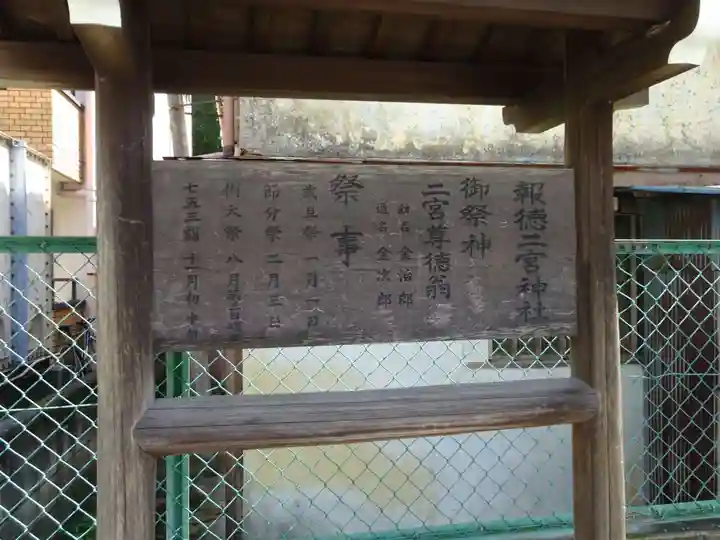 報徳二宮神社
御祭神
二宮尊徳翁
幼名 金治郎
通名 金次郎
祭事
歳旦祭 一月一日
節分祭 二月三日
例大祭 八月
七五三詣 十一月初